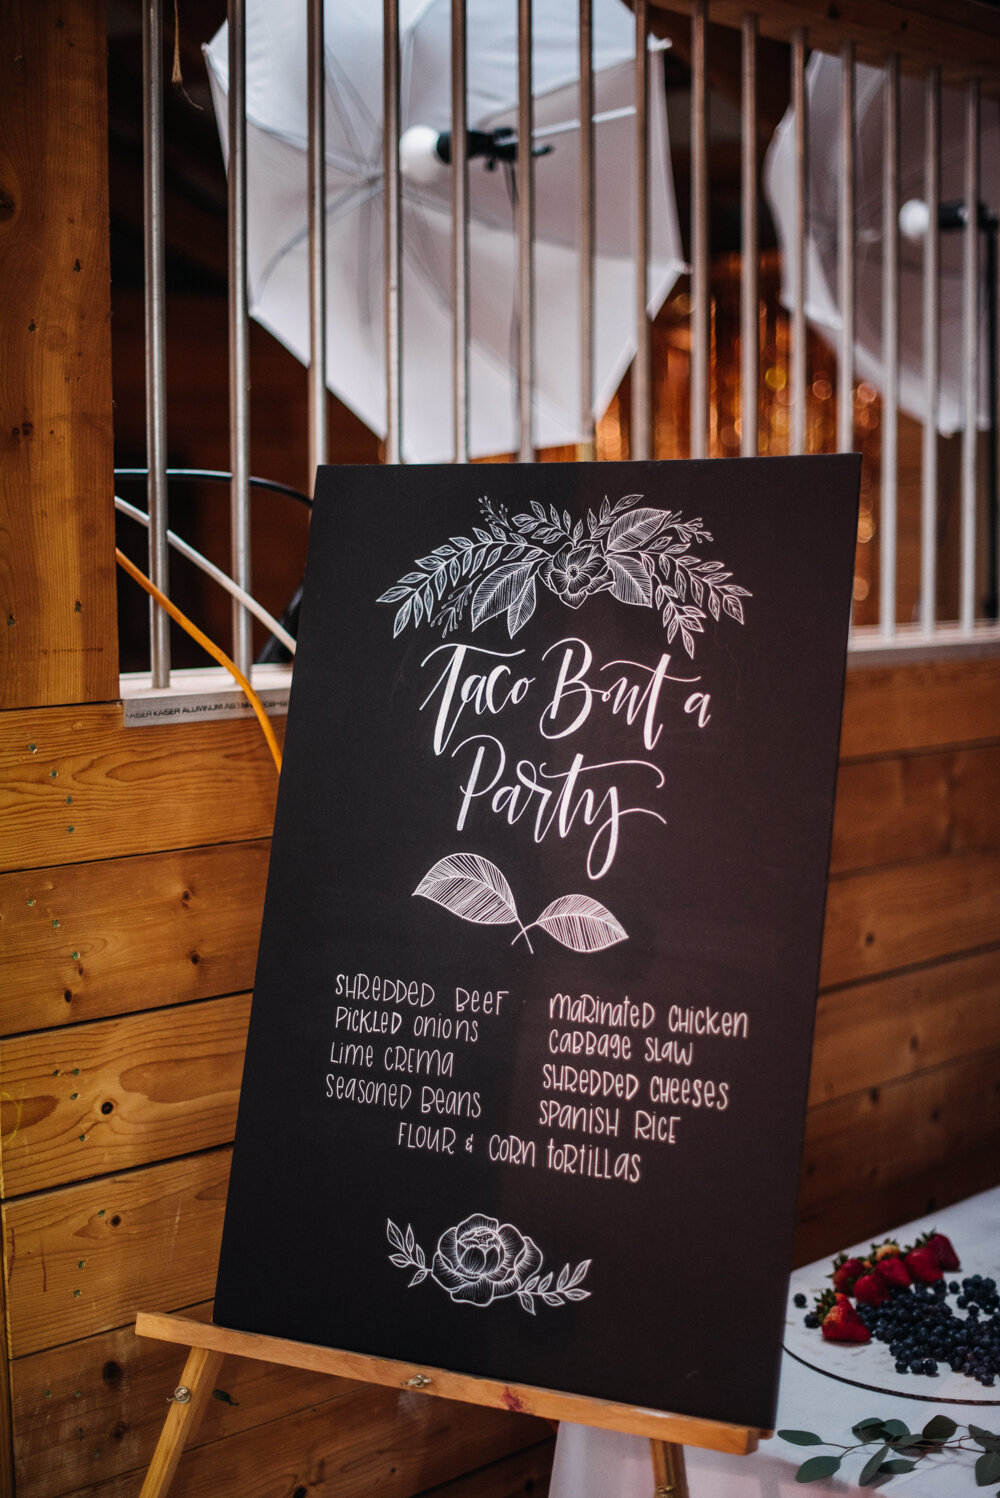 Taco Bout a
Party
SHREDDED BEEF
PICKLED ONIONS
LIME CREMA
SEASONED BEANS
MARINATED CHICKEN
CABBAGE SLAW
SHREDDED CHEESES
SPANISH RICE
FLOUR & CORN TORTILLAS
KAISER ALUMINUM